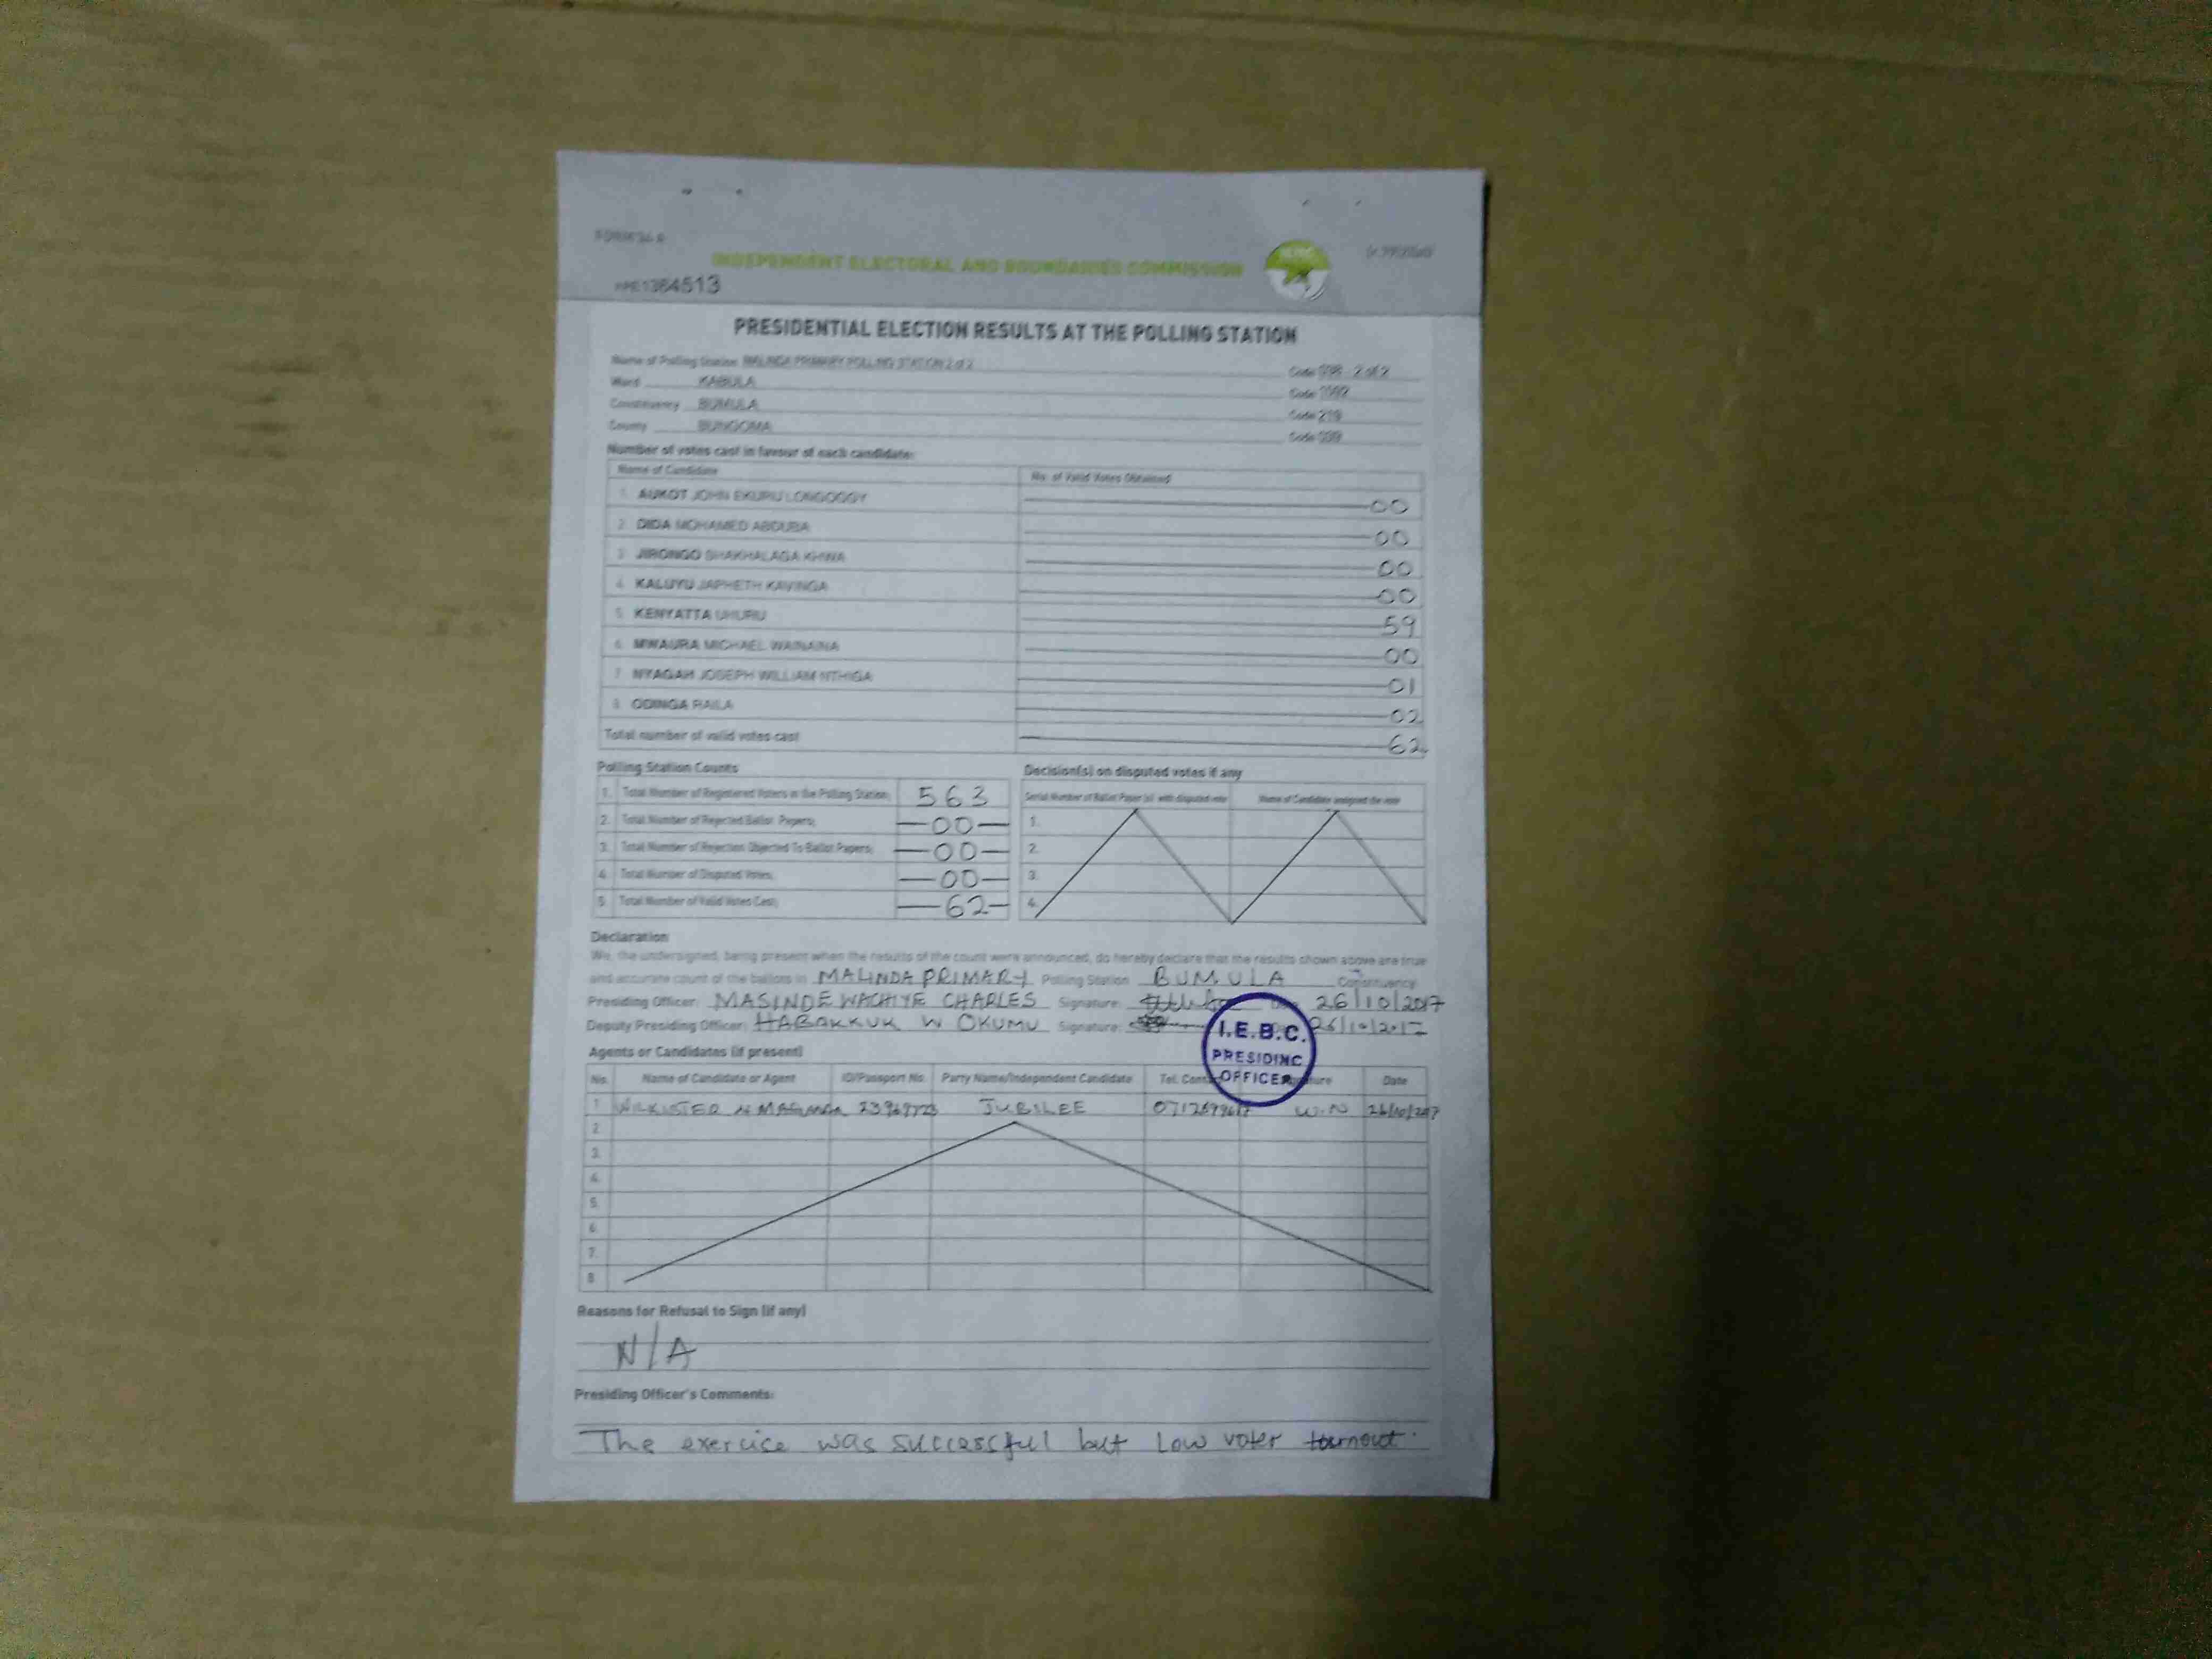 FORM 34 A
INDEPENDENT ELECTORAL AND BOUNDARIES COMMISSION
1384513
PRESIDENTIAL ELECTION RESULTS AT THE POLLING STATION
Name of Polling Station MALINDA PRIMARY POLLING STATION 2 of 2 Code 2 of 2
Ward KABULA Code
Constituency BUMULA Code 219
County BUNGOMA Code 039
Number of votes cast in favour of each candidate:
Name of Candidate No. of Valid Votes Obtained
1. AUKOT JOHN EKURU LONGOGGY 00
2. DIDA MOHAMED ABDUBA 00
3. JIRONGO SHAKHALAGA KHWA 00
4. KALUYU JAPHETH KAVINGA 00
5. KENYATTA UHURU 59
6. MWAURA MICHAEL WAINAINA 00
7. NYAGAH JOSEPH WILLIAM NTHIGA 01
8. ODINGA RAILA 02
Total number of valid votes cast 62
Polling Station Counts
1. Total Number of Registered Voters in the Polling Station; 563
2. Total Number of Rejected Ballot Papers; 00
3. Total Number of Rejection Objected To Ballot Papers; 00
4. Total Number of Disputed Votes; 00
5. Total Number of Valid Votes Cast; 62
Decision(s) on disputed votes if any
Serial Number of Ballot Paper (s) with disputed vote Name of Candidate assigned the vote
1.
2.
3.
4.
Declaration
We, the undersigned, being present when the results of the count were announced, do hereby declare that the results shown above are true
and accurate count of the ballots in MALINDA PRIMARY Polling Station BUMULA Constituency
Presiding Officer: MASINDE WACHIYE CHARLES Signature: 26/10/2017
Deputy Presiding Officer: HABAKKUK W OKUMU Signature: 26/10/2017
I.E.B.C.
PRESIDING
OFFICER
Agents or Candidates (if present)
No. Name of Candidate or Agent ID/Passport No. Party Name/Independent Candidate Tel. Contact Signature Date
1 WILKISTER N JUBILEE W.N 26/10/2017
2.
3.
4.
5.
6.
7.
8
Reasons for Refusal to Sign (if any)
N/A
Presiding Officer's Comments:
The exercise was successful but Low voter tournout.